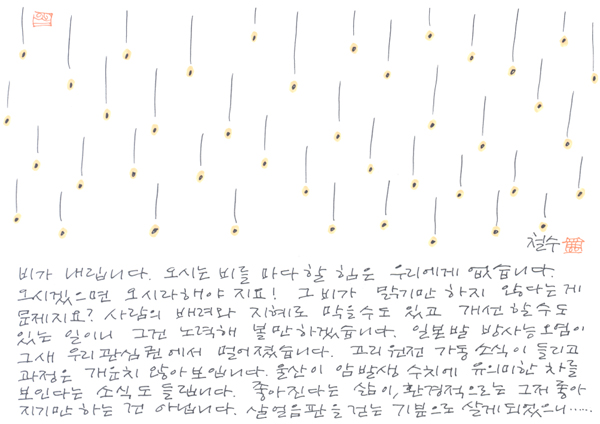 철수
비가 내립니다. 오시는 비를 마다 할 힘은 우리에게 없습니다.
오시겠으면 오시라해야 지요! 그 비가 맑기만 하지 않다는게
문제지요? 사람의 배려와 지혜로 막을수도 있고 개선 할수도
있는 일이니 그건 노력해 볼만하겠습니다. 일본발 방사능오염이
그새 우리관심권에서 멀어졌습니다. 고리원전 가동소식이 들리고
과정은 개운치 않아보입니다. 울산이 암발생 수치에 유의미한 차를
보인다는 소식도 들립니다. 좋아진다는 삶이, 환경적으로는 그저 좋아
지기만 하는 건 아닙니다. 살얼음판을 걷는 기분으로 살게 되었으니……